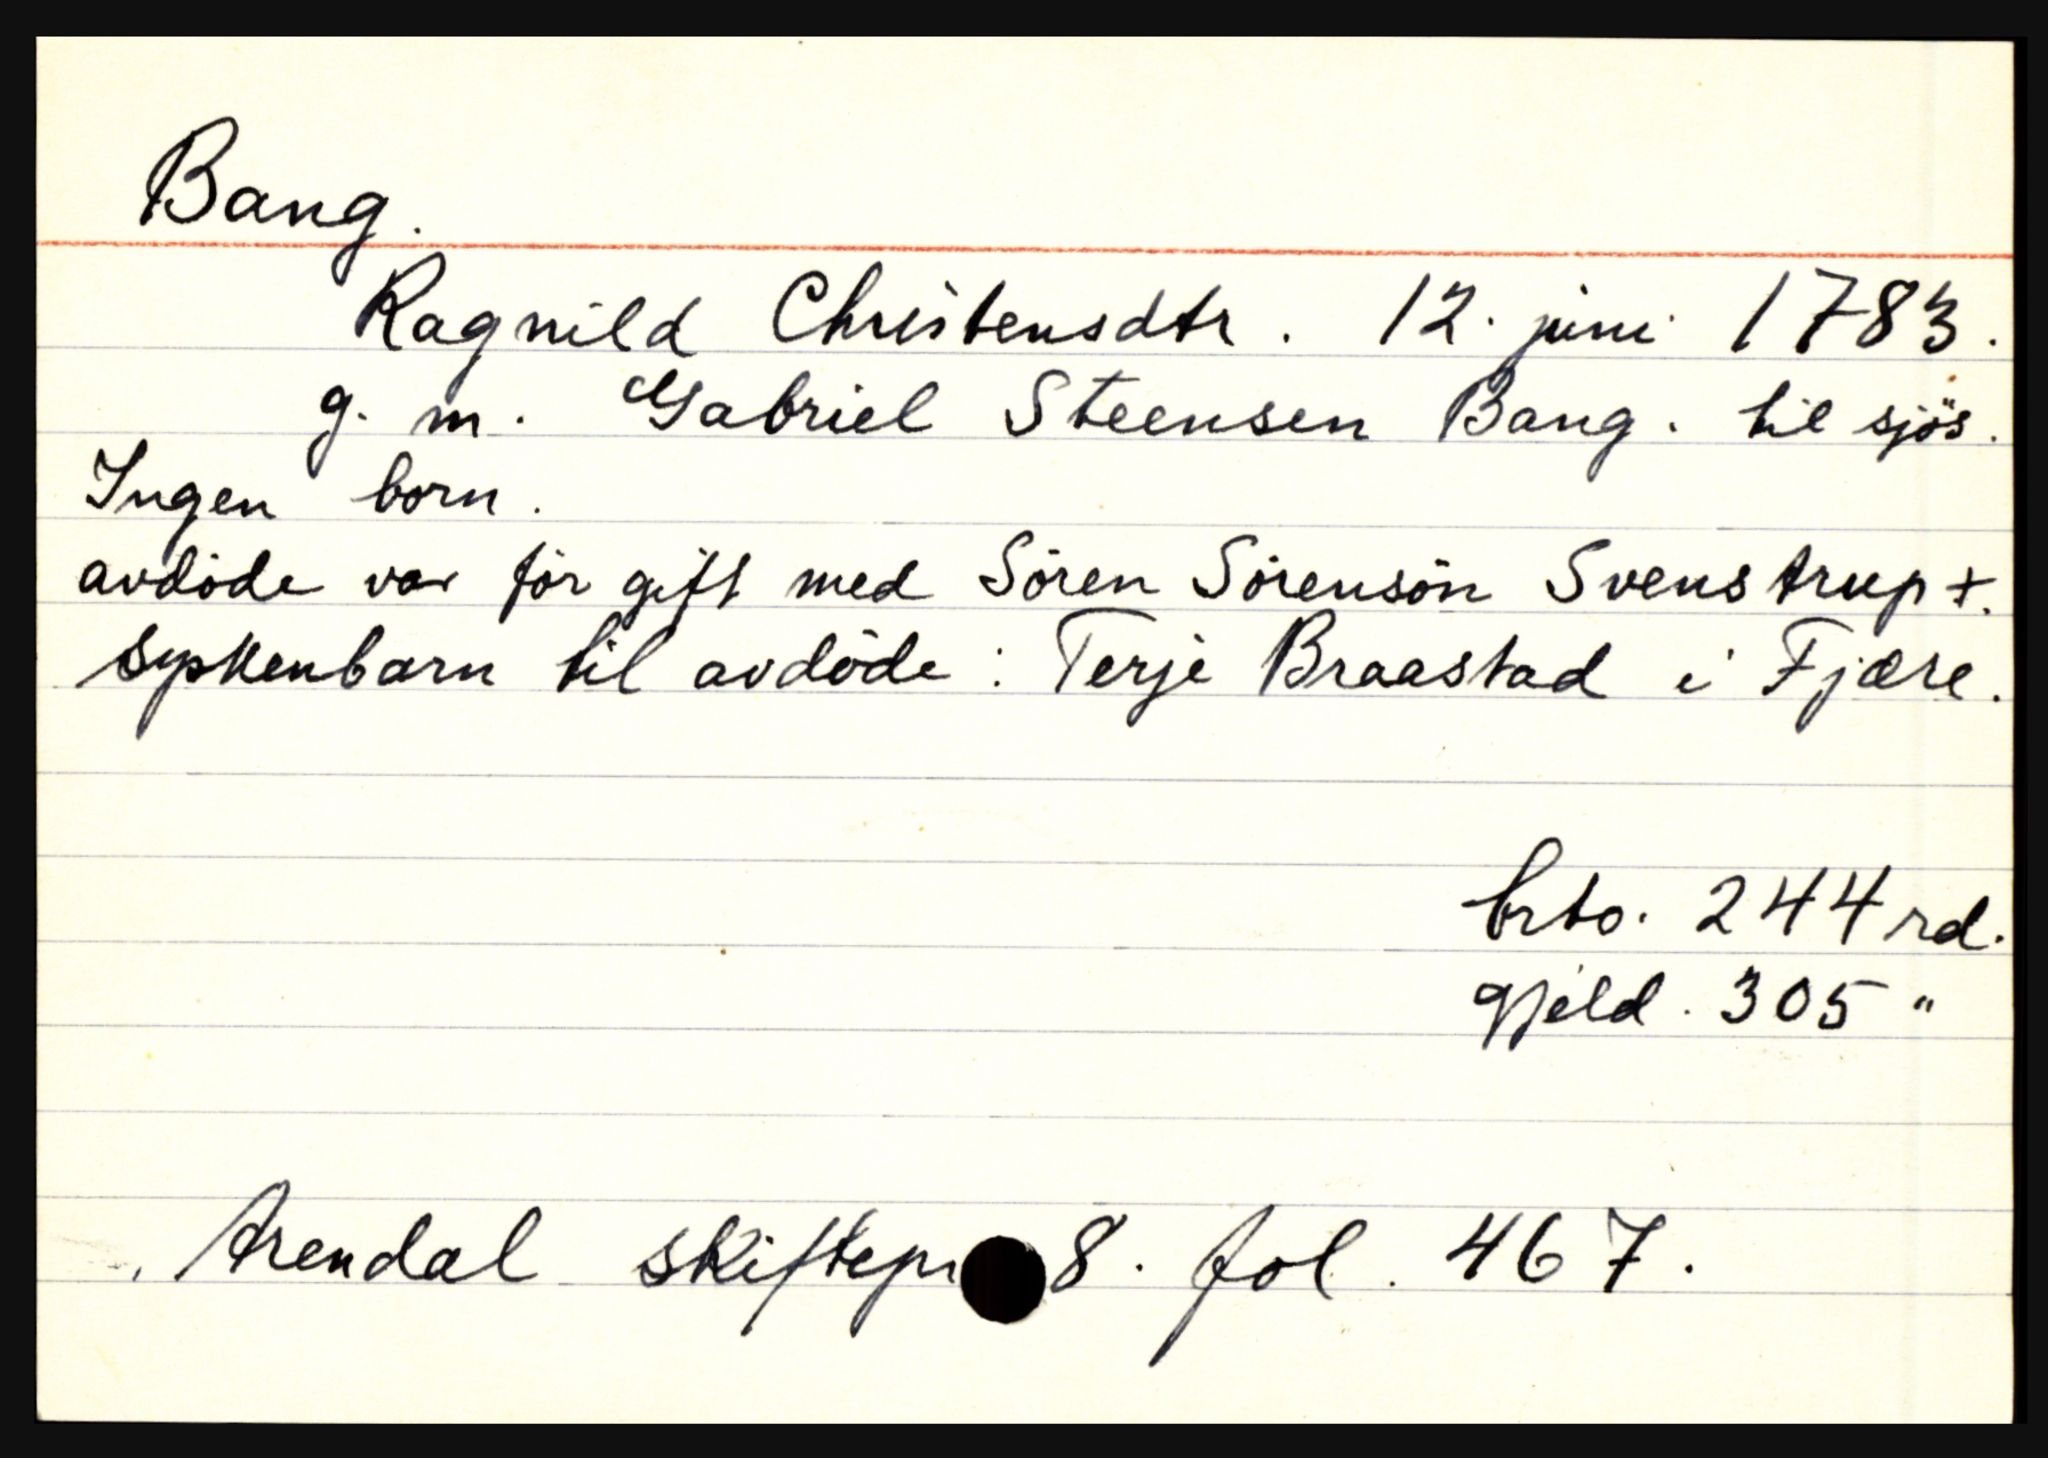 Bang.
Ragnild Christensdtr. 12. juni 1783.
g. m. Gabriel Steensen Bang. til sjös.
Ingen born.
avdöde var för gift med Sören Sörensön Svenstrup +.
Syskenbarn til avdöde: Terje Braastad i Fjære.
brto. 244 rd.
Gjeld. 305 "
Arendal skiftepr 8. fol. 467.